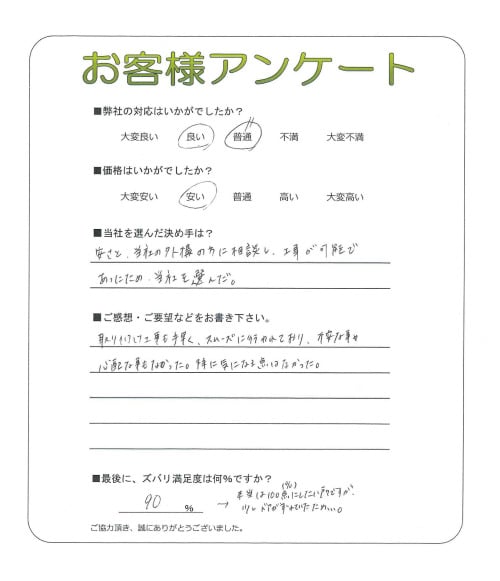 お客様アンケート
■弊社の対応はいかがでしたか？
大変良い 良い 普通 不満 大変不満
■価格はいかがでしたか？
大変安い 安い 普通 高い 大変高い
■当社を選んだ決め手は？
安さと、当社の外構の方に相談し、工事が可能で
あったため、当社を選んだ。
■ご感想・ご要望などをお書き下さい。
取り付け工事も手早く、スムーズに行われており、不安な事や
心配な事もなかった。特に気になる点はなかった。
■最後に、ズバリ満足度は何％ですか？
90 % → 本当は100点(%)にしたい所ですが、
少しドアが ため…。
ご協力頂き、誠にありがとうございました。